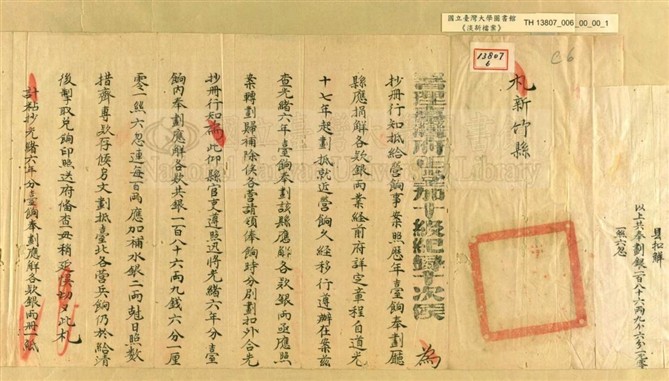 國立臺灣大學圖書館
《淡新檔案》
TH 13807_006_00_00_1
13807
6
C6
札新竹縣
加十級紀錄十次陳 為
抄冊行知抵給營餉事案照歷年臺餉奉劃廳
縣應捐解各款銀兩業經前府詳定章程自道光
十七年起劃抵就近營餉久經移行遵辦在案茲
查光緒六年臺餉奉劃該縣應解各款銀兩亟應照
案轉劃歸補除俟各營請領俸餉時分別劃扣外合先
抄冊行知為此仰縣官吏遵照迅將光緒六年分臺
餉內奉劃應解各款共銀一百八十六兩九錢六分一厘
零一絲六忽連每百兩應加補水銀二兩尅日照數
措齊專款存候另文劃抵臺北各營兵餉仍於給清
後掣取兌餉印照送府備查毋稍延誤切切此札
計粘抄光緒六年分臺餉奉劃應解各款銀兩冊一紙
以上共奉劃銀一百八十六兩九錢六分一厘零
一絲六忽